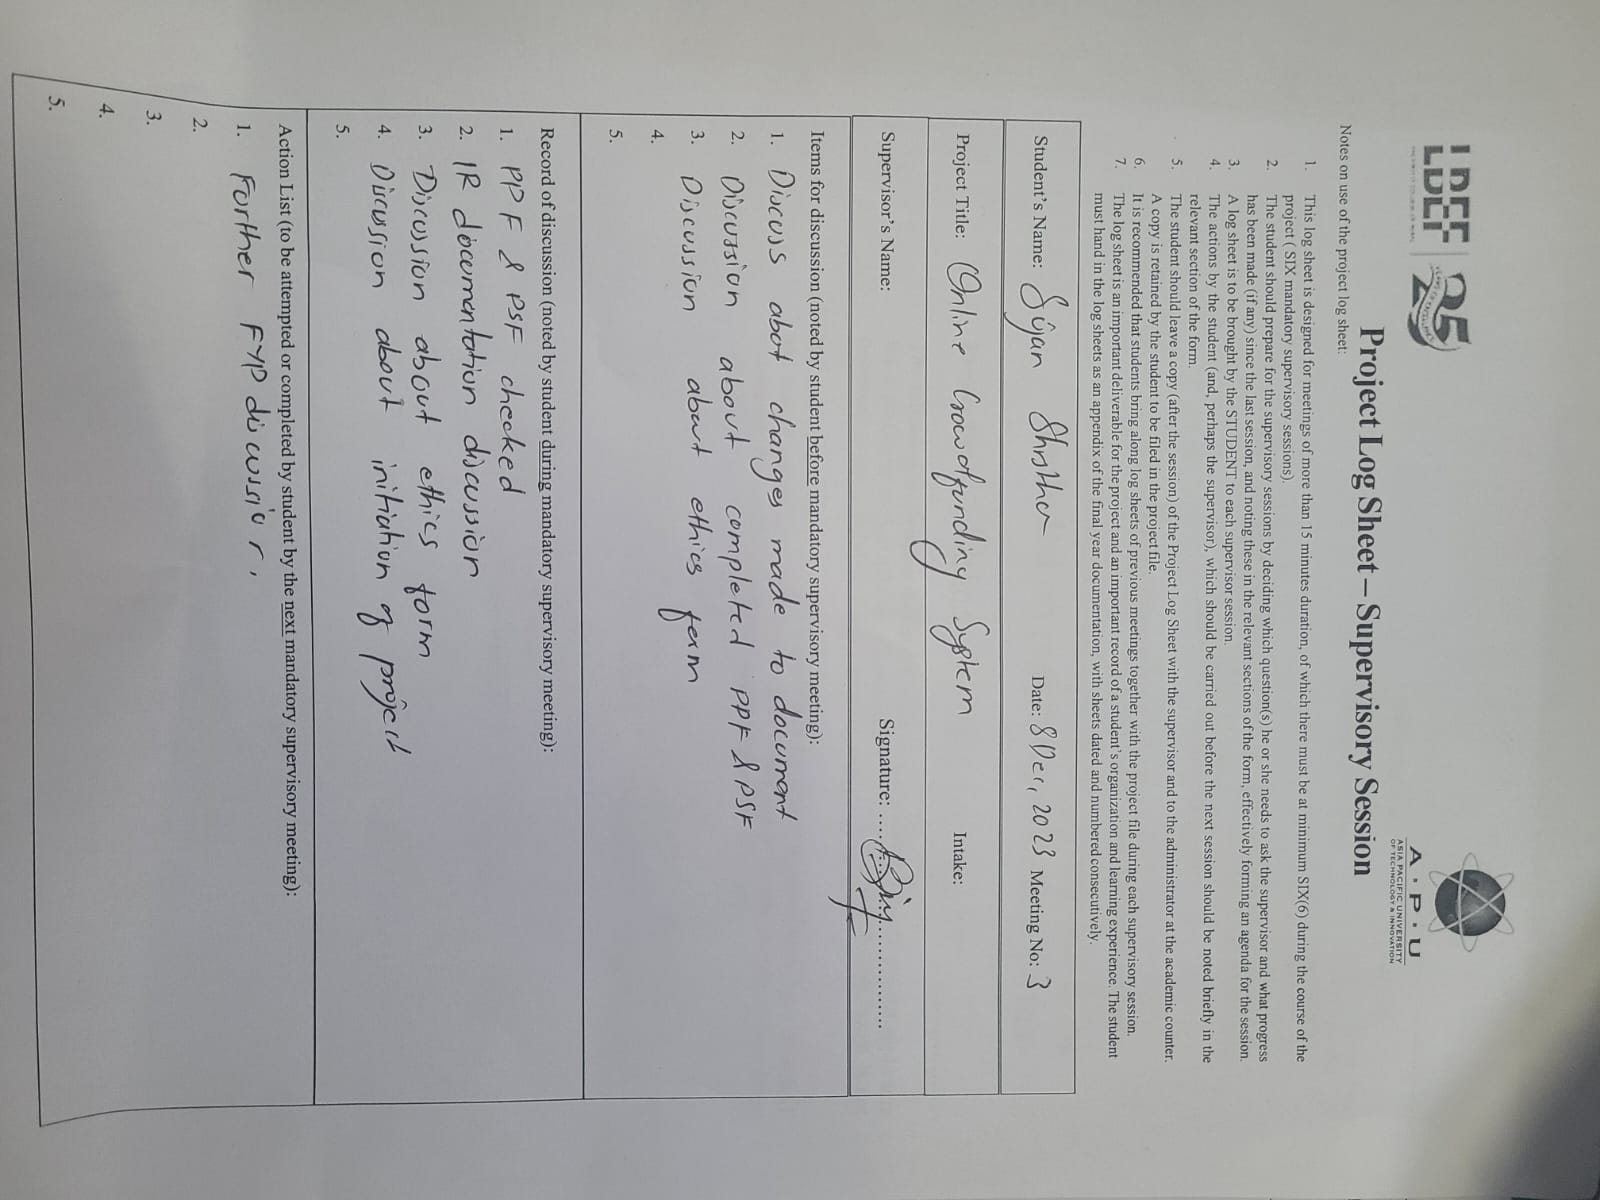 LBEF
25
YEARS OF EXCELLENCE
A·P·U
ASIA PACIFIC UNIVERSITY
OF TECHNOLOGY & INNOVATION
Project Log Sheet – Supervisory Session
Notes on use of the project log sheet:
1. This log sheet is designed for meetings of more than 15 minutes duration, of which there must be at minimum SIX(6) during the course of the
project ( SIX mandatory supervisory sessions).
2. The student should prepare for the supervisory sessions by deciding which question(s) he or she needs to ask the supervisor and what progress
has been made (if any) since the last session, and noting these in the relevant sections of the form, effectively forming an agenda for the session.
3. A log sheet is to be brought by the STUDENT to each supervisor session.
4. The actions by the student (and, perhaps the supervisor), which should be carried out before the next session should be noted briefly in the
relevant section of the form.
5. The student should leave a copy (after the session) of the Project Log Sheet with the supervisor and to the administrator at the academic counter.
A copy is retained by the student to be filed in the project file.
6. It is recommended that students bring along log sheets of previous meetings together with the project file during each supervisory session.
7. The log sheet is an important deliverable for the project and an important record of a student's organization and learning experience. The student
must hand in the log sheets as an appendix of the final year documentation, with sheets dated and numbered consecutively.
Student's Name: Sijan Shrstha Date: 8 Dec, 2023 Meeting No: 3
Project Title: Online Crowdfunding System Intake:
Supervisor's Name: Signature: ....................
Items for discussion (noted by student before mandatory supervisory meeting):
1. Discuss abot changes made to document
2. Discussion about completed PPF & PSF
3. Discussion about ethics form
4.
5.
Record of discussion (noted by student during mandatory supervisory meeting):
1. PPF & PSF checked
2. IR documentation discussion
3. Discussion about ethics form
4. Discussion about initiation of project
5.
Action List (to be attempted or completed by student by the next mandatory supervisory meeting):
1. Further FYP discussion.
2.
3.
4.
5.